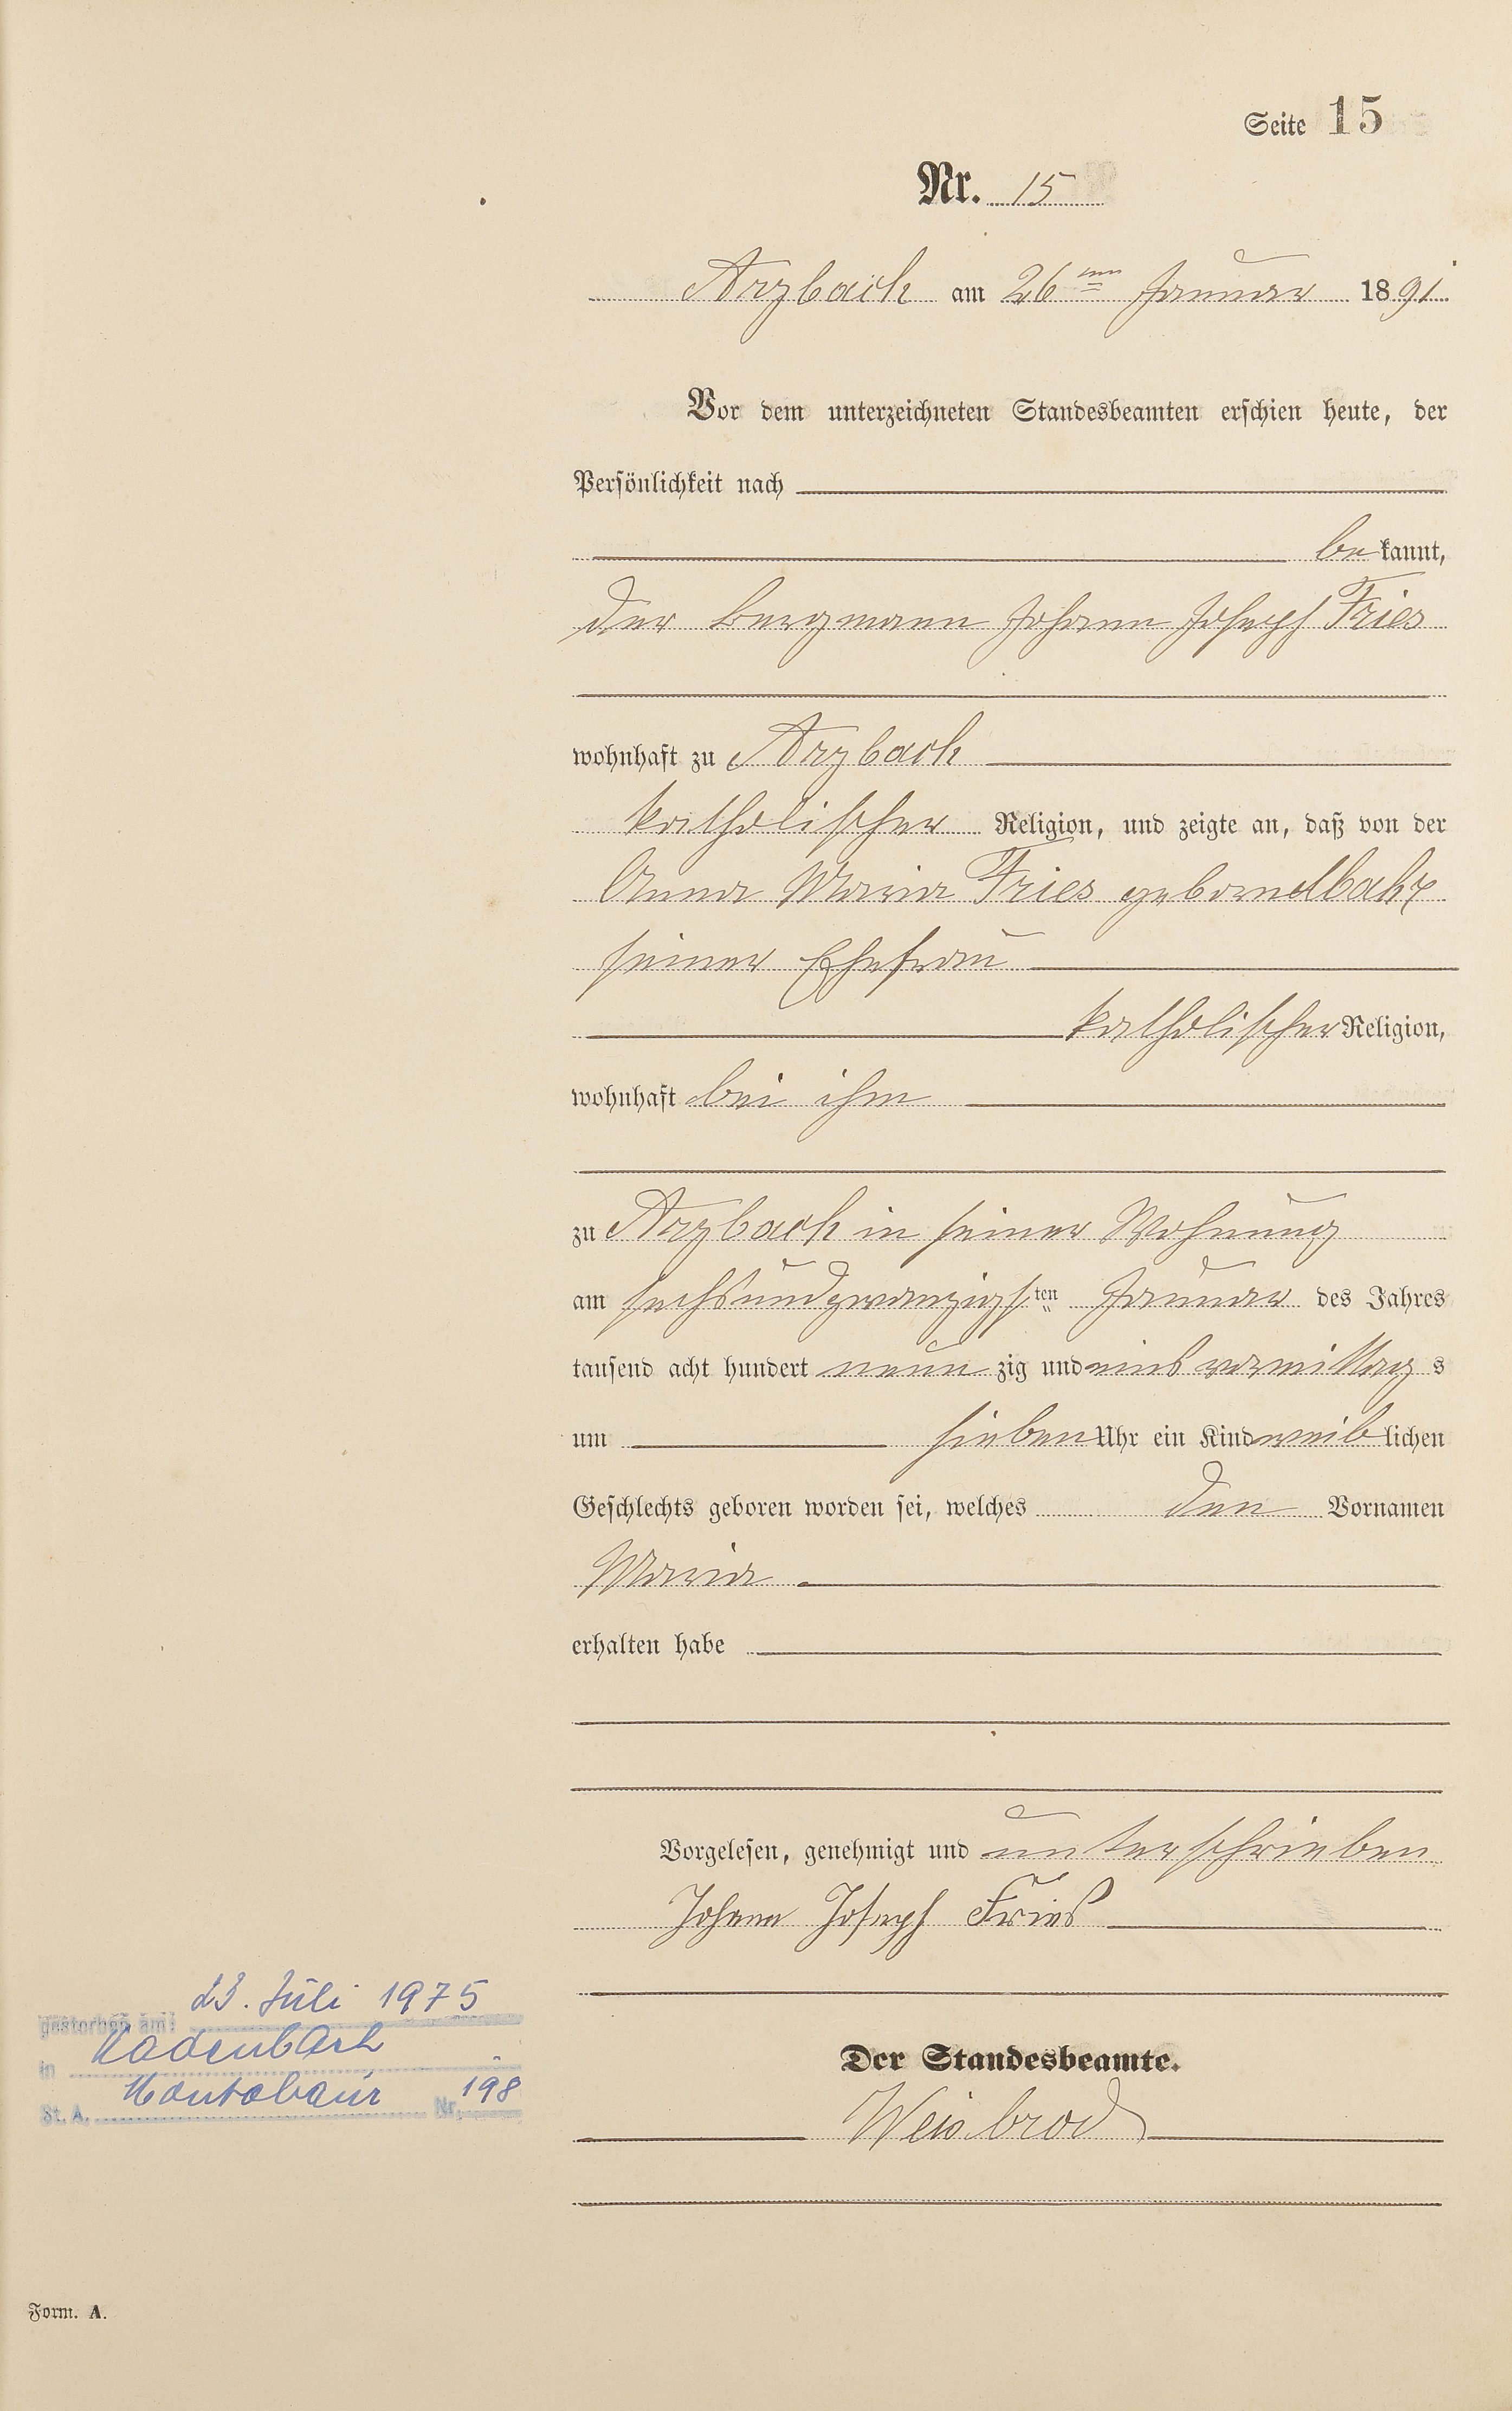 Seite 15
Nr. 15
Arzbach am 26ten Januar 1891
Vor dem unterzeichneten Standesbeamten erschien heute, der
Persönlichkeit nach
bekannt,
der Bergmann Johann Joseph Fries
wohnhaft zu Arzbach
katholischer Religion, und zeigte an, daß von der
Anna Maria Fries geborne
seiner Ehefrau
katholischer Religion,
wohnhaft bei ihm
zu Arzbach in seiner Wohnung
am sechsundzwanzigsten Januar des Jahres
tausend acht hundert neunzig und eins vormittags
um sieben Uhr ein Kind weiblichen
Geschlechts geboren worden sei, welches den Vornamen
Maria
erhalten habe
Vorgelesen, genehmigt und unterschrieben
Johann Joseph Fries
Der Standesbeamte.
Weisbrod
gestorben am: 23. Juli 1975
in Kadenbach
St. A. Montabaur Nr. 198
Form. A.